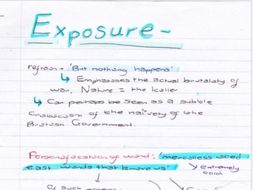 Exposure -
refrain - 'But nothing happens'
↳ Emphasises the actual brutality of
war, Nature = the killer
↳ Can perhaps be seen as a subtle
of the naivety of the
British Government.
Personification of wind: 'merciless iced
east winds that knive us'
↳ extremely